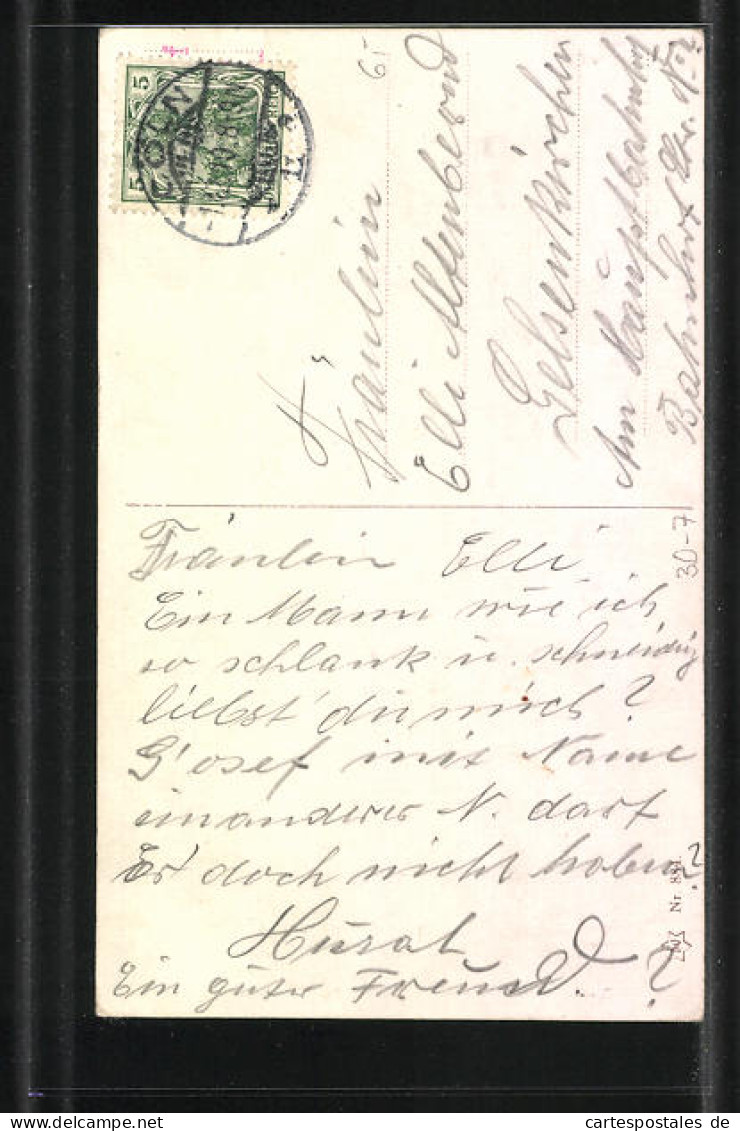 5
5
CÖLN
65
Fräulein
Elli Altenbernd
Gelsenkirchen
Am Hauptbahnhof
Bahnhof Str. N. 2
30-7
Fräulein Elli
Ein Mann wie ich
so schlank u. schneidig
liebst du mich?
G'osef mit Name
ein anderer N. darf
Er doch nicht haben?
Hurah
Ein guter Freund. ?
Nr. 881.
cartespostales de